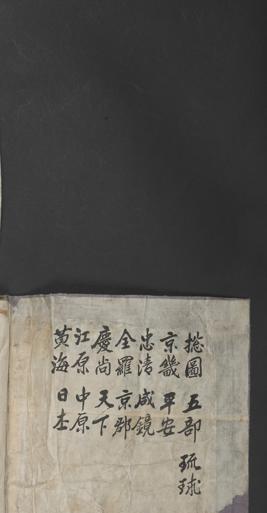 捴圖 五部 琉球
京畿 平安
忠清 咸鏡
全羅 京都
慶尚 天下
江原 中原
黃海 日本